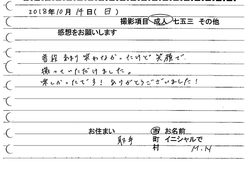 2018年10月14日(日)
撮影項目 成人 七五三 その他
感想をお願いします
普段あまり笑わなかったけど笑顔で
撮っていただけました。
楽しかったです！ありがとうございました！
お住まい 市 お名前
取手 町 イニシャルで
村 M.N